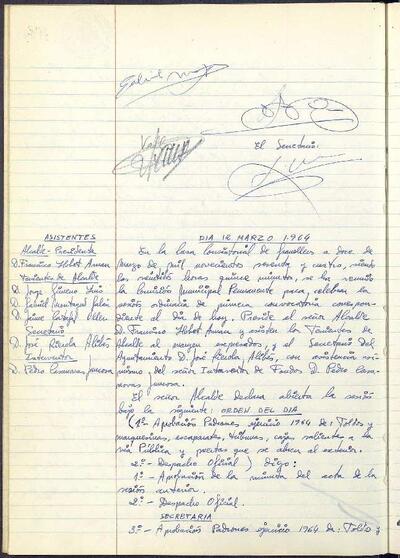 Gabriel
El Secretario:
ASISTENTES
Alcalde-Presidente
D. Francisco Llobet
Tenientes de Alcalde
D. Jorge
D. Gabriel
D. Jaime
Secretario
D. José
Interventor
D. Pedro Casanovas
DIA 12 MARZO 1.964
En la Casa Consistorial de Granollers a doce de
marzo de mil novecientos sesenta y cuatro, siendo
las veintidós horas quince minutos, se ha reunido
la Comisión Municipal Permanente para celebrar la
sesión ordinaria de primera convocatoria correspon-
diente al día de hoy. Preside el señor Alcalde
D. Francisco Llobet y asisten los Tenientes de
Alcalde al margen expresados, y el Secretario del
Ayuntamiento D. José con asistencia asi-
mismo del señor Interventor de Fondos D. Pedro Casa-
novas
El señor Alcalde declara abierta la sesión
bajo la siguiente: ORDEN DEL DIA
(1º- Aprobación Padrones ejercicio 1964 de: Toldos y
marquesinas, escaparates, tribunas, cajas salientes a la
vía Pública y puertas que se abren al exterior.
2º- Despacho Oficial) Digo:
1º- Aprobación de la minuta del acta de la
sesión anterior.
2º- Despacho Oficial.
SECRETARIA
3º- Aprobación Padrones ejercicio 1964 de: Toldos y